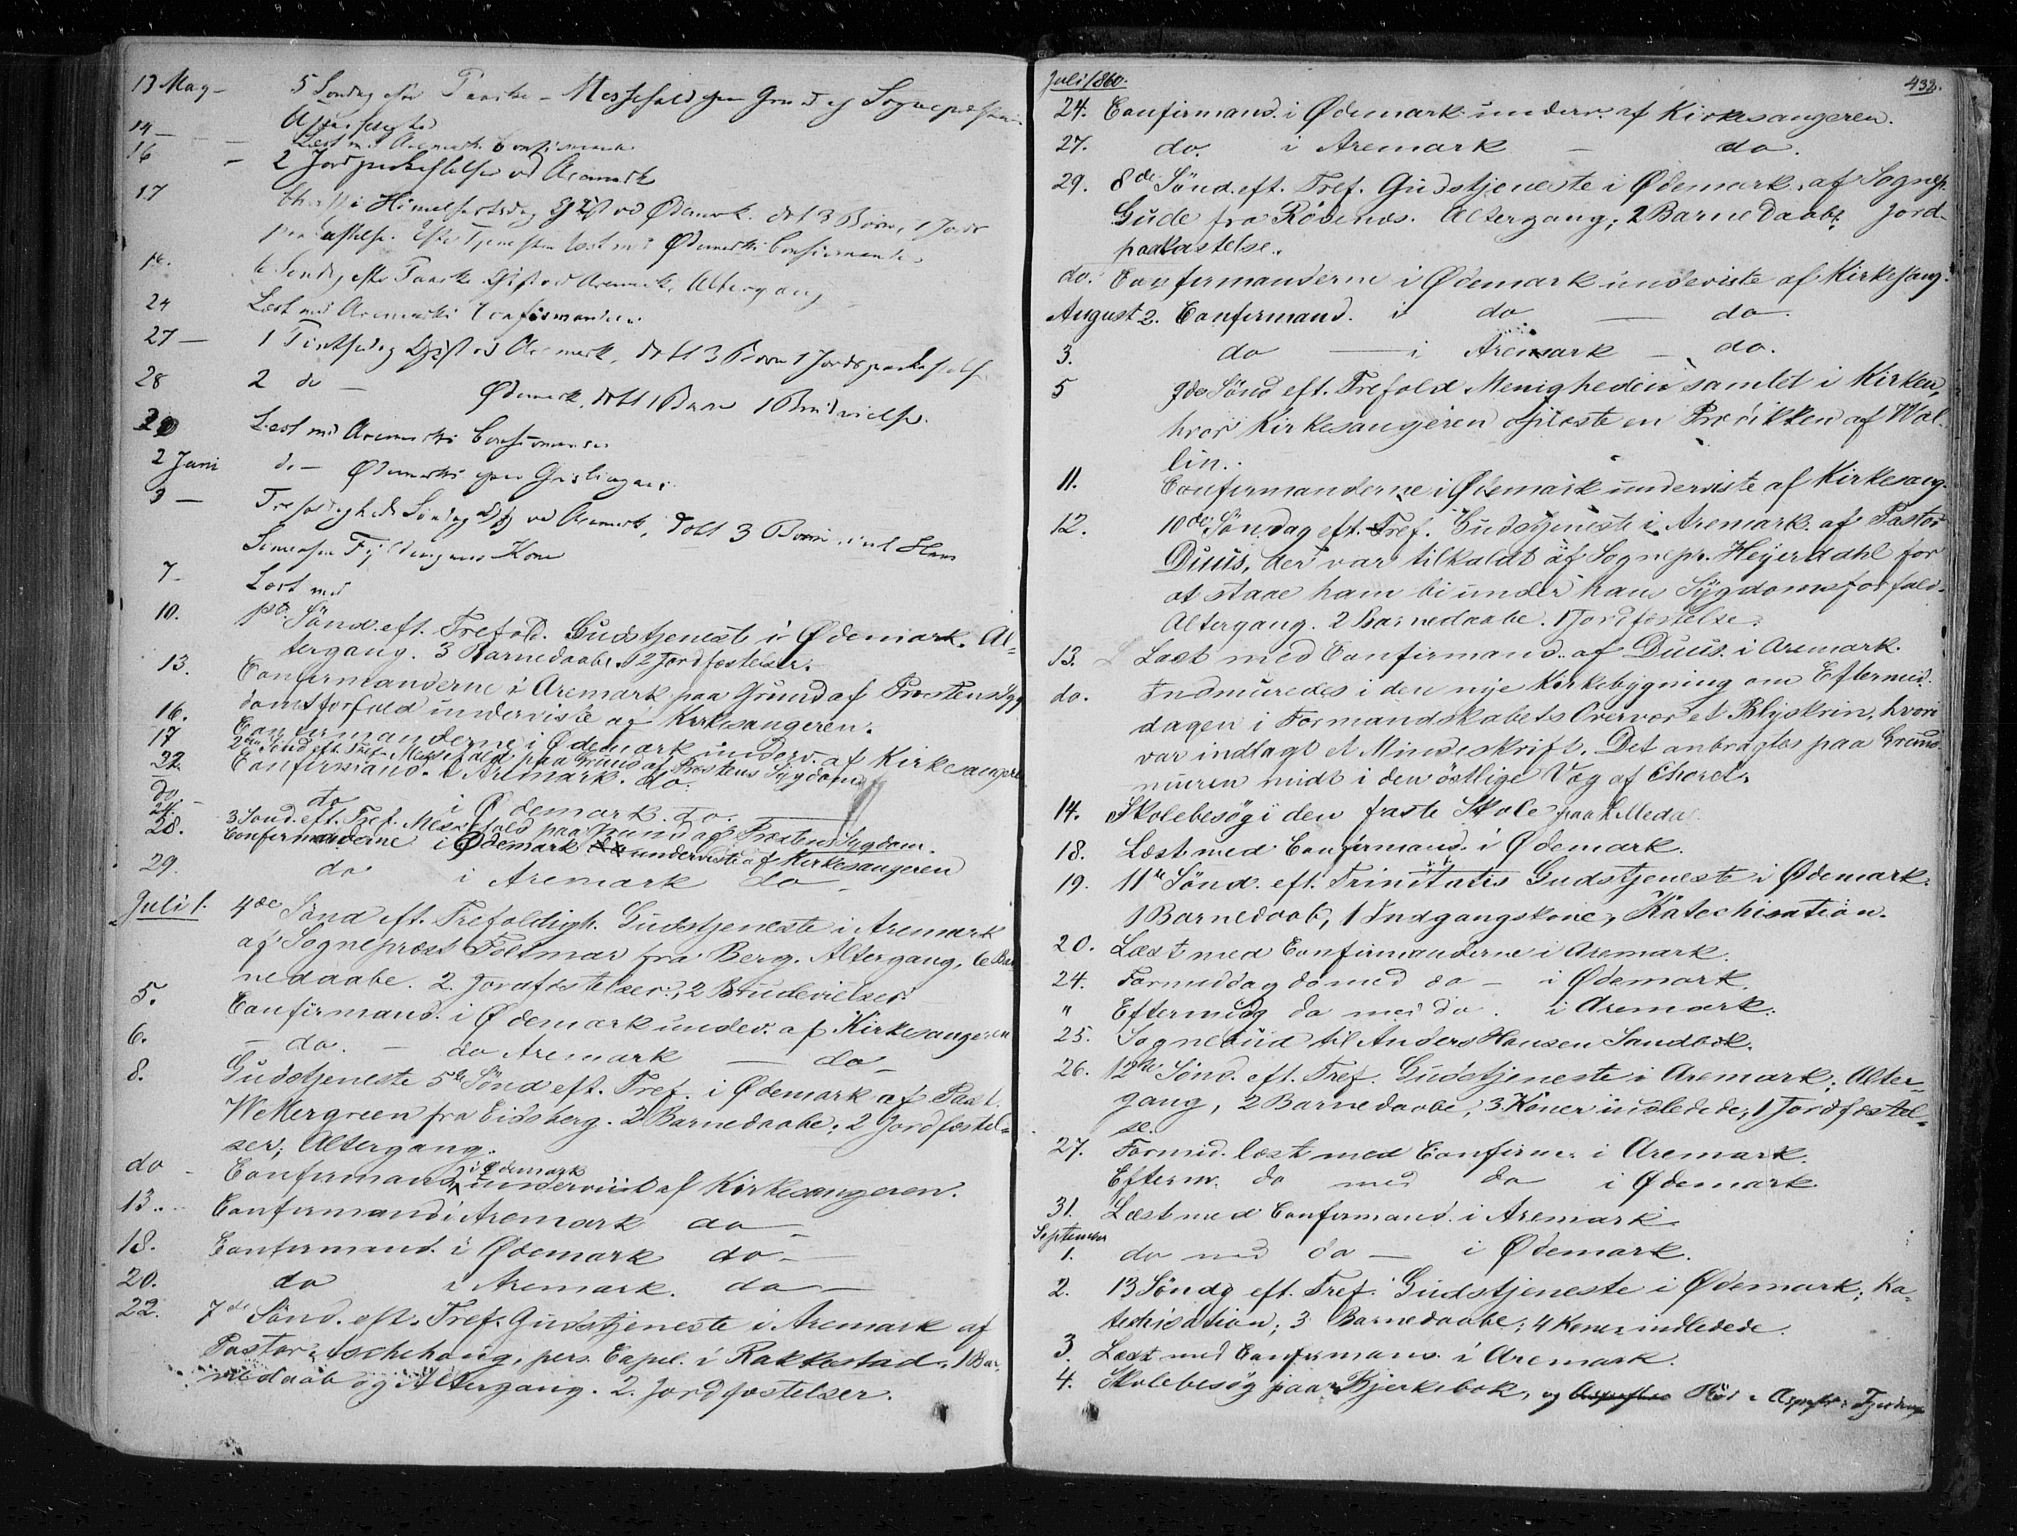 13 May - 5 Søndag efter Paaske - Messefald paa Grund af Sognepræstens
14 -
Læst med Aremarks Confirmander
16 - 2 Jordpaakastelser ved Aremark
17 Christi Himmelfartsdag Gtjst ved Ødemark. døbt 3 Børn, 1 Jords
paakastelse. Efter Tjenesten læst med Ødemarks Confirmander
6 Søndag efter Paaske Gtjst ved Aremark, Altergang
24 Læst med Aremarks Confirmander
27 - 1 Pintsedag Gtjst ved Aremark, døbt 3 Børn 1 Jordspaakastelse
28 2 do - Ødemark, døbt 1 Barn 1 Brudvielse.
Læst med Aremarks Confirmander
2 Juni do - Ødemarks
3 - Trefoldigheds Søndag Gtj ved Aremark, døbt 3 Børn
Kone
7 - Læst med
10. Sönd. eft. Trefold. Gudstjeneste i Ødemark. Al-
tergang. 3 Barnedaabe. 2 Jordfæstelser.
13. Confirmanderne i Aremark paa Grund af Præstens Syg-
domsforfald underviste af Kirkesangeren.
16. Confirmanderne i Ødemark underv. af Kirkesangeren
17 2den Sönd. eft. Tref. Messefald paa Grund af Præstens Sygdom
22 Confirmand. i Aremark. do.
do. - do i Ødemark. do.
24. 3 Sönd. eft. Tref. Messefald paa Grund af Præstens Sygdom.
28. Confirmanderne i Ødemark underviste af Kirkesangeren
29. do i Aremark do -
Juli 1. 4de Sönd eft. Trefoldigh. Gudstjeneste i Aremark
af Sognepræst Foltmar fra Berg. Altergang, 6 Bar
nedaabe. 2. Jordfæstelser; 2 Brudevielser.
5. Confirmand. i Ødemark underv. af Kirkesangeren
6. - do. - do Aremark - do -
8. Gudstjeneste 5te Sönd eft. Tref. i Ødemark af Past.
Wettergreen fra Eidsberg. 2 Barnedaabe; 2 Jordfæstel-
ser; Altergang.
do - Confirmand i Ødemark undervist af Kirkesangeren.
13. Confirmand i Aremark do -
18. Confirmand. i Ødemark do -
20. do i Aremark. do -
22. 7de Sönd. eft. Tref. Gudstjeneste i Aremark af
Pastor Aschehoug, pers. Capel. i Rakkestad. 1 Bar-
nedaab og Altergang. 2. Jordfæstelser.
Juli 1860. 432.
24. Confirmand. i Ødemark underv. af Kirkesangeren.
27. do. i Aremark - do.
29. 8de Sönd. eft. Tref. Gudstjeneste i Ødemark af Sognep.
Gude fra Rödenes. Altergang; 2 Barnedaabe; Jord-
paakastelse.
do. Confirmanderne i Ødemark underviste af Kirkesang.
August 2. Confirmand. i do - do.
3. do - i Aremark - do.
5 9de Sönd eft. Trefold Menigheden samlet i Kirken,
hvor Kirkesangeren oplæste en Prædikken af Wal-
lin.
11. Confirmanderne i Ødemark underviste af Kirkesang.
12. 10de Söndag eft. Tref. Gudstjeneste i Aremark af Pastor
Duus, der var tilkaldt af Sognepr. Heyerdahl for
at staae ham bi under hans Sygdomsforfald.
Altergang. 2 Barnedaabe. 1 Jordfæstelse.
13. Læst med Confirmand. af Duus i Aremark.
do. Indmuredes i den nye Kirkebygning om Eftermid-
dagen i Formandskabets Overvær et Blyskrin, hvori
var indlagt et Mindeskrift. Det anbragtes paa Grund-
muren midt i den östlige Væg af Choret.
14. Skolebesøg i den faste Skole paa Killedal
18. Læst med Confirmand. i Ødemark.
19. 11te Sönd. eft. Trinitatis Gudstjeneste i Ødemark.
1 Barnedaab, 1 Indgangskone, Katechisation.
20. Læst med Confirmanderne i Aremark.
24. Formiddag do med do - i Ødemark.
" Eftermidg do med do. i Aremark.
25. Sognebud til Anders Hansen Sandbæk.
26. 12te Sönd. eft. Tref. Gudstjeneste i Aremark; Alter-
gang, 2 Barnedaabe; 3 Koner indledede; 1 Jordfæstel-
se.
27. Formid. læst med Confirm. i Aremark.
Efterm. do med do i Ødemark.
31. Læst med Confirmand. i Aremark
September
1. do med do - i Ødemark.
2. 13 Søndg eft. Tref. Gudstjeneste i Ødemark; Ka-
techisation; 3 Barnedaabe; 4 Koner indledede.
3. Læst med Confirmand. i Aremark.
4. Skolebesøg paa Bjerkebæk, og